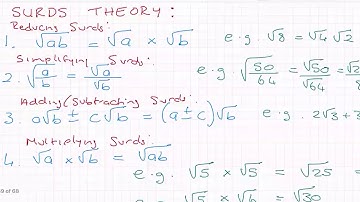 SURDS THEORY:
Reducing Surds:
1. √ab = √a × √b e.g. √8 = √4 √2
Simplifying Surds:
2. √a/b = √a/√b e.g √50/64 = √50/√64 = √2
Adding/Subtracting Surds:
3. a√b ± c√b = (a ± c)√b e.g. 2√3 + 3
Multiplying Surds:
4. √a × √b = √ab
e.g. √5 × √5 = √25 =
√5 × √6 = √30
9 of 68